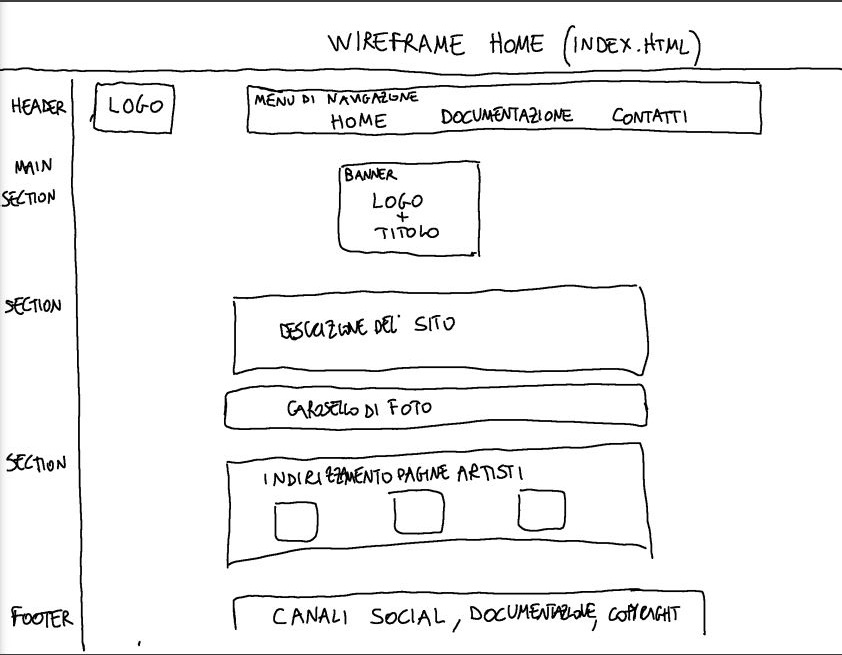 WIREFRAME HOME (INDEX.HTML)
HEADER
LOGO
MENU DI NAVIGAZIONE
HOME DOCUMENTAZIONE CONTATTI
MAIN
SECTION
BANNER
LOGO
+
TITOLO
SECTION
DESCRIZIONE DEL' SITO
CAROSELLO DI FOTO
SECTION
INDIRIZZAMENTO PAGINE ARTISTI
FOOTER
CANALI SOCIAL, DOCUMENTAZIONE, COPYRIGHT